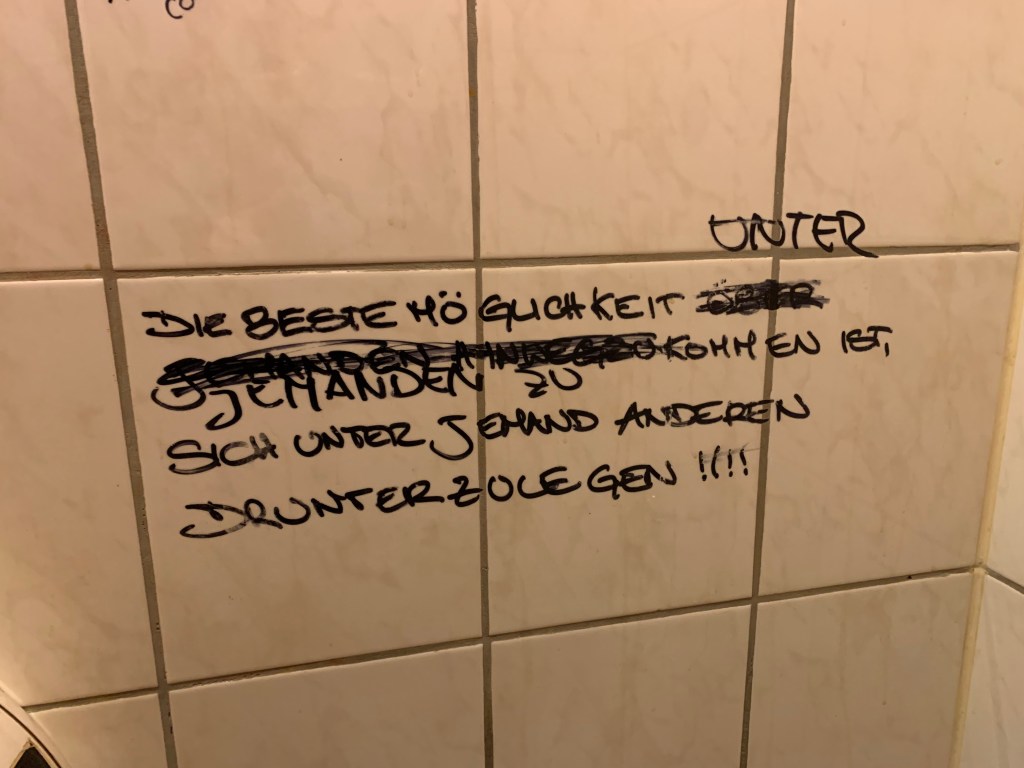 UNTER
DIE BESTE MÖGLICHKEIT ÜBER
JEMANDEN HINWEGZUKOMMEN IST,
JEMANDEN ZU
SICH UNTER JEMAND ANDEREN
DRUNTERZULEGEN !!!!